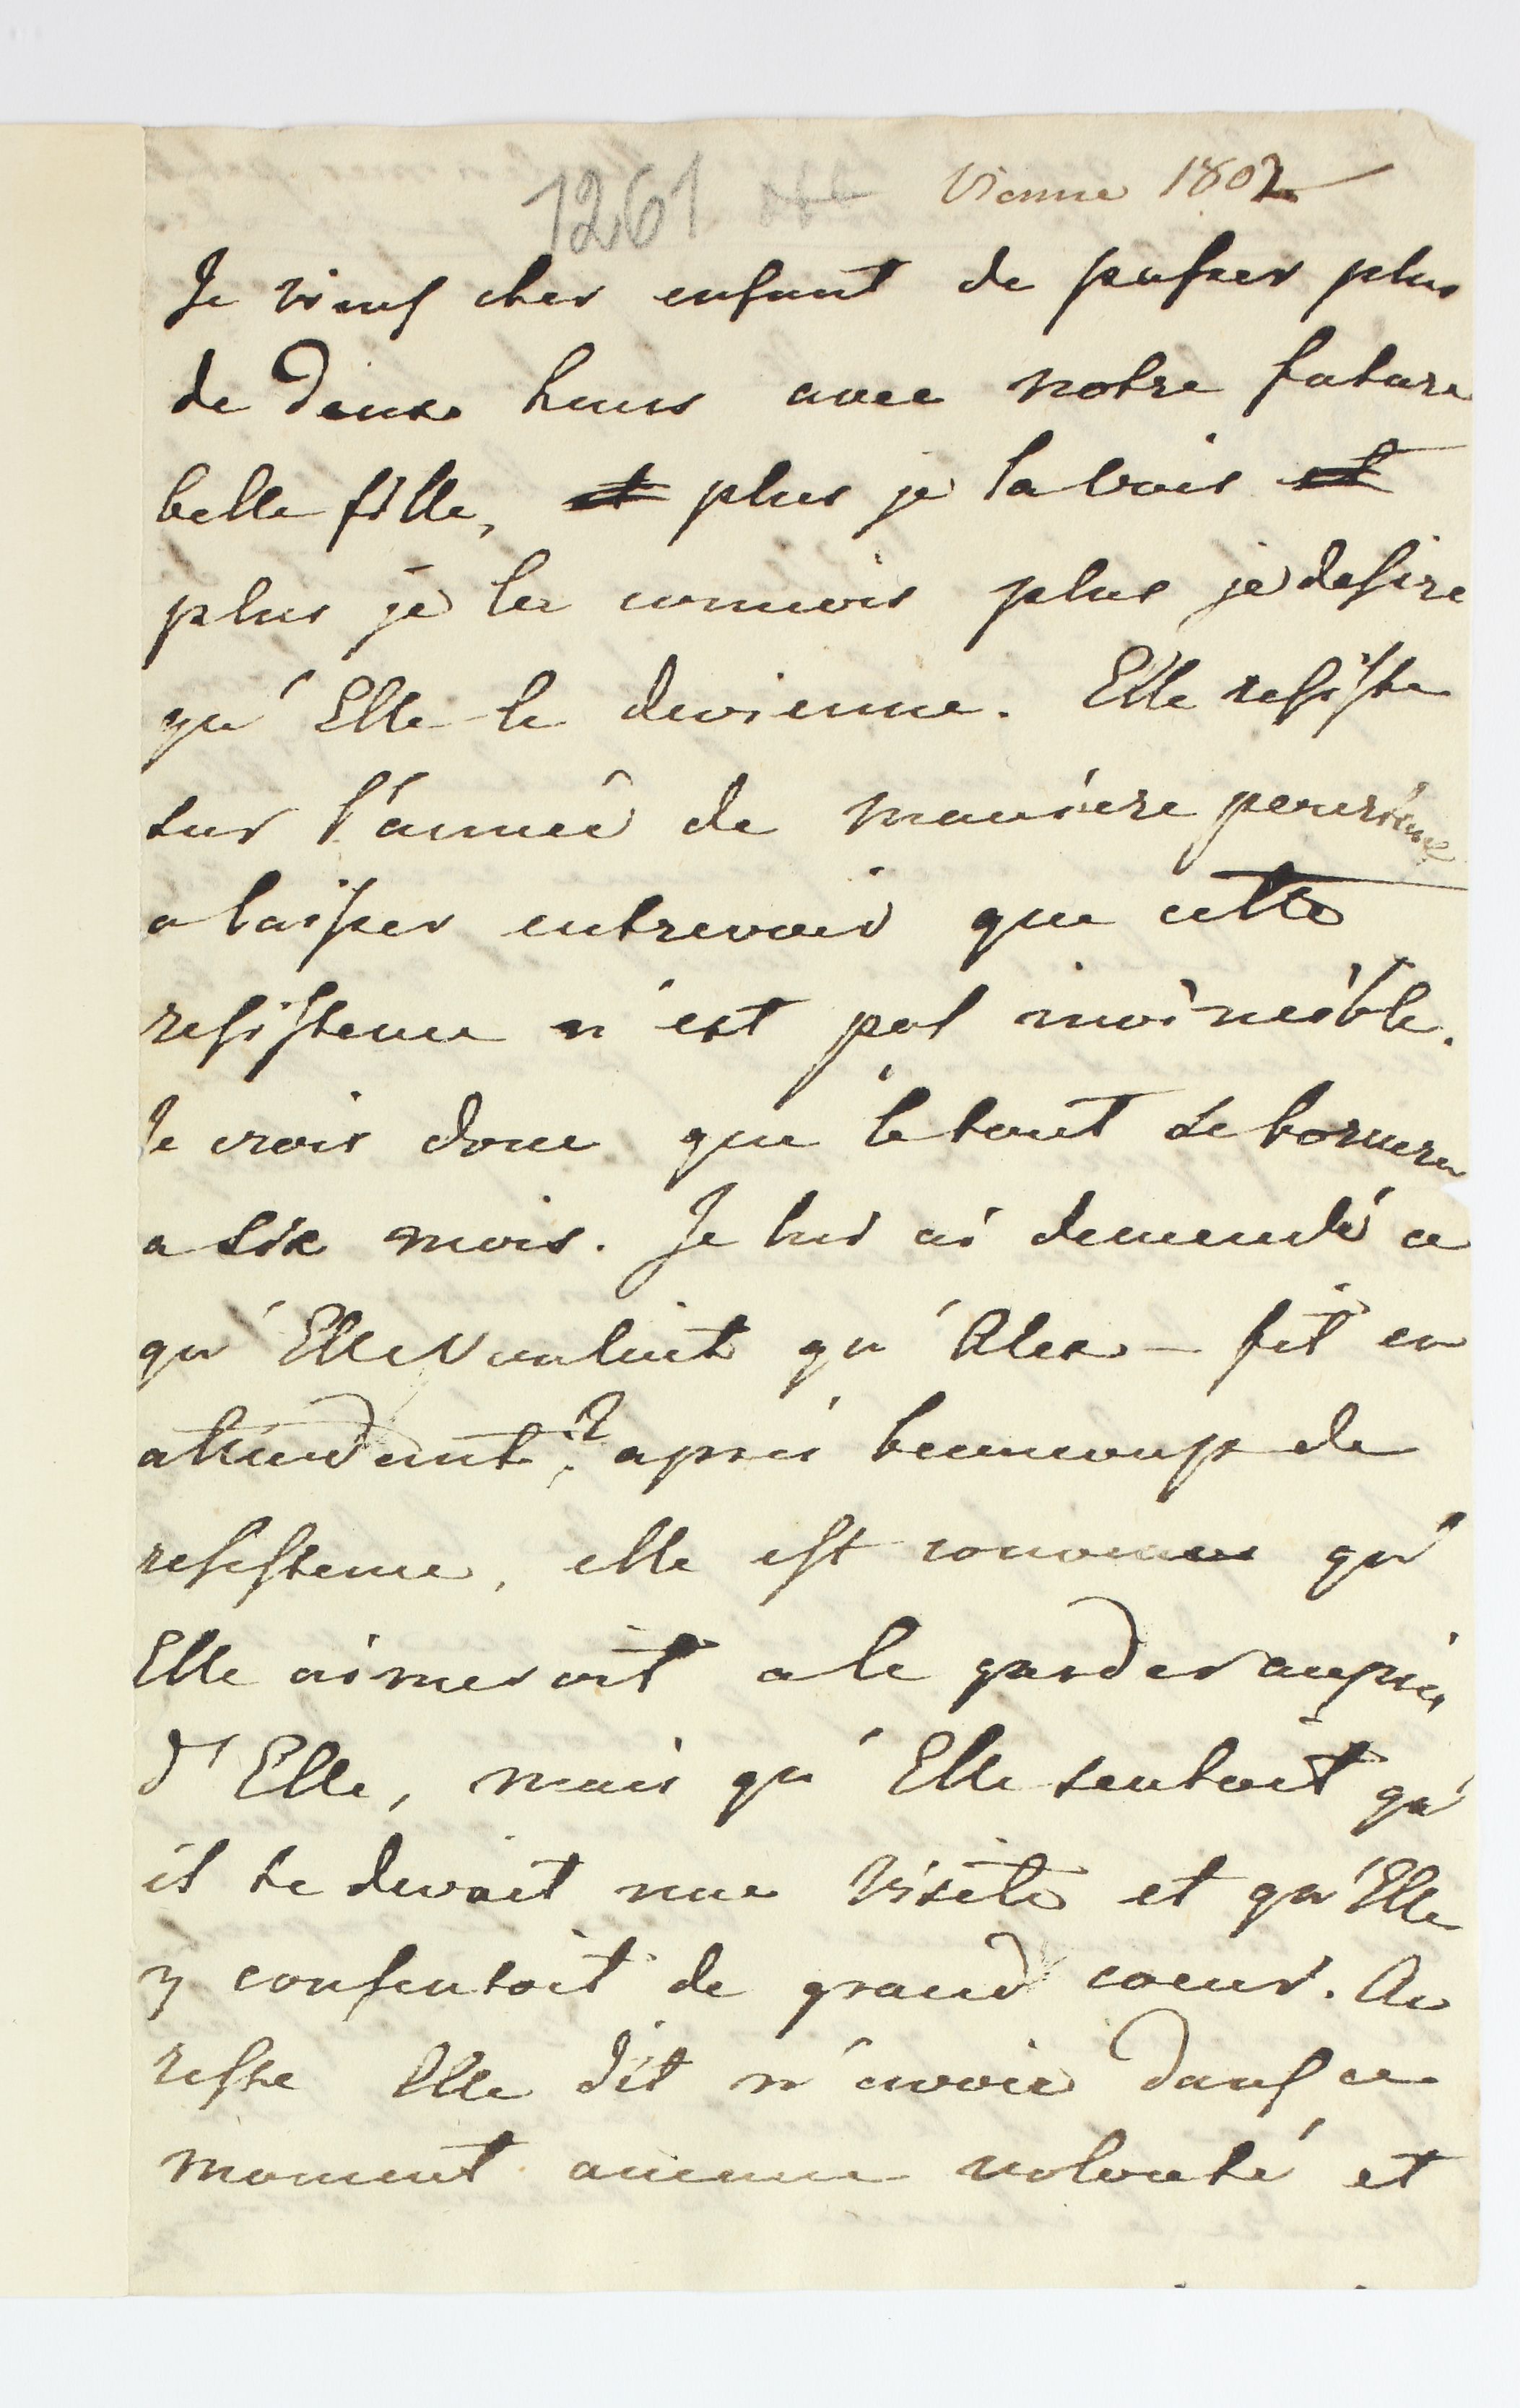 1261 Vienne 1807
Je viens cher enfant de passer plus
de deux heures avec notre future
belle fille, et plus je la vois et
plus je la connois plus je desire
qu'Elle le devienne. Elle resiste
sur l'année de manière pourtant
a laisser entrevoir que cette
resistence n'est pas invincible.
Je crois donc que le tout se bornera
a six mois. Je lui ai demendé ce
qu'Elle vouloit qu'Alex - fit en
attendant? après beaucoup de
resistence, elle est convenue qu'
Elle aimeroit a le garder auprès
d'Elle, mais qu'Elle sentoit qu'
il te devoit une visite et qu'Elle
y consentoit de grand coeur. Au
reste Elle dit n'avoir dans ce
moment aucune volonté et